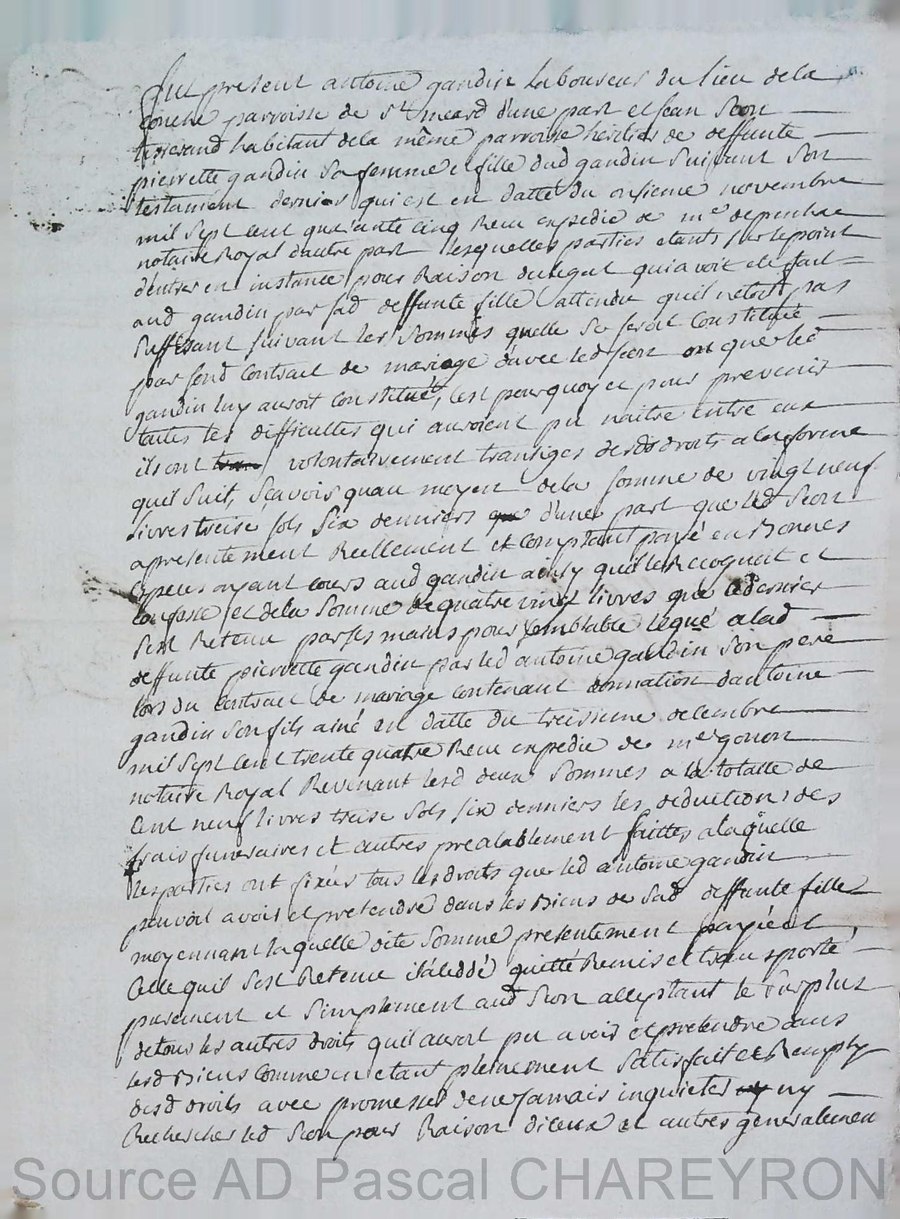 fut present antoine gandin laboureur du lieu de la
conche parroisse de St meard d'une part et Jean Seon
tisserand habitant de la même parroisse heritier de deffunte
pierrette gandin sa femme et fille dud gandin Suivant Son
testament dernier qui est en datte du onsieme novembre
mil Sept cent quarante cinq Receu expedie de me
notaire Royal d'autre part lesquelles parties etants sur le point
d'entrer en instance pour Raison du legat qui avoit ete fait
aud gandin par sad deffunte fille attendu quil netoit pas
Suffisant suivant les Sommes quelle Se seroit Constitué
par sond Contrait de mariage d'avec led Seon ou que led
gandin luy auroit Constitué, c'est pourquoy et pour prevenir
toutes les difficultes qui auroient pu naitre entre eux
ils ont volontairement transiges desdts droits a la forme
quil Suit, Sçavoir quau moyen de la Somme de vingt neuf
livres treise sols Six denniers d'une part que led Seon
a presentement Reellement et Comptant payé en Bonnes
Especes ayant cours aud gandin ainsy quil le Recognoit et
Confesse, et de la Somme de quatre vingt livres que ce dernier
Sest Retenu par ses mains pour semblable legué a lad
deffunte pierrette gandin par led antoine gandin Son pere
lors du Contrait de mariage Contenant donnation d'antoine
gandin Son fils ainé en datte du treisieme decembre
mil Sept cent trente quatre Receu expedie de me gonon
notaire Royal Revenant lesd deux Sommes a la totalle de
Cent neuf livres treise Sols Six denniers les deductions des
frais funeraires et autres prealablement faittes a laquelle
les parties ont fixées tous les droits que led antoine gandin
pouvoit avoir et pretendre dans les Biens de Sad deffunte fille
moyennant laquelle dite Somme presentement payée et
Celle quil Sest Retenue il a ceddé quitté Remis et transporté
purement et Simplement aud Seon acceptant le surplus
de tous les autres droits quil auroit pu avoir et pretendre dans
lesd Biens Comme en etant pleinement Satisfait et Remply
desd droits avec promesse de ne Jamais inquieter ny
Rechercher led Seon pour Raison diceux et autres generalement
Source AD Pascal CHAREYRON